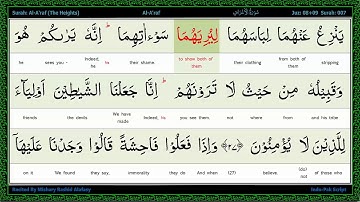 Surah: Al-A'raf (The Heights) Al-A'raf سُورَةُ الْأَعْرَافِ Juz: 08+09 Surah: 007
يَنْزِعُ عَنْهُمَا لِبَاسَهُمَا لِيُرِيَهُمَا سَوْاٰتِهِمَا ؕ اِنَّهٗ يَرٰىكُمْ هُوَ
he sees you - Indeed, he their shame. to show both of them their clothing from both of them stripping
وَقَبِيْلُهٗ مِنْ حَيْثُ لَا تَرَوْنَهُمْ ؕ اِنَّا جَعَلْنَا الشَّيٰطِيْنَ اَوْلِيَآءَ
friends the devils We have made Indeed, you see them. not where from and his tribe
لِلَّذِيْنَ لَا يُؤْمِنُوْنَ ﴿۲۷﴾ وَاِذَا فَعَلُوْا فَاحِشَةً قَالُوْا وَجَدْنَا عَلَيْهَآ
on it We found they say, immorality they do And when (27) believe. (do) not of those who
Recited By Mishary Rashid Alafasy Indo-Pak Script